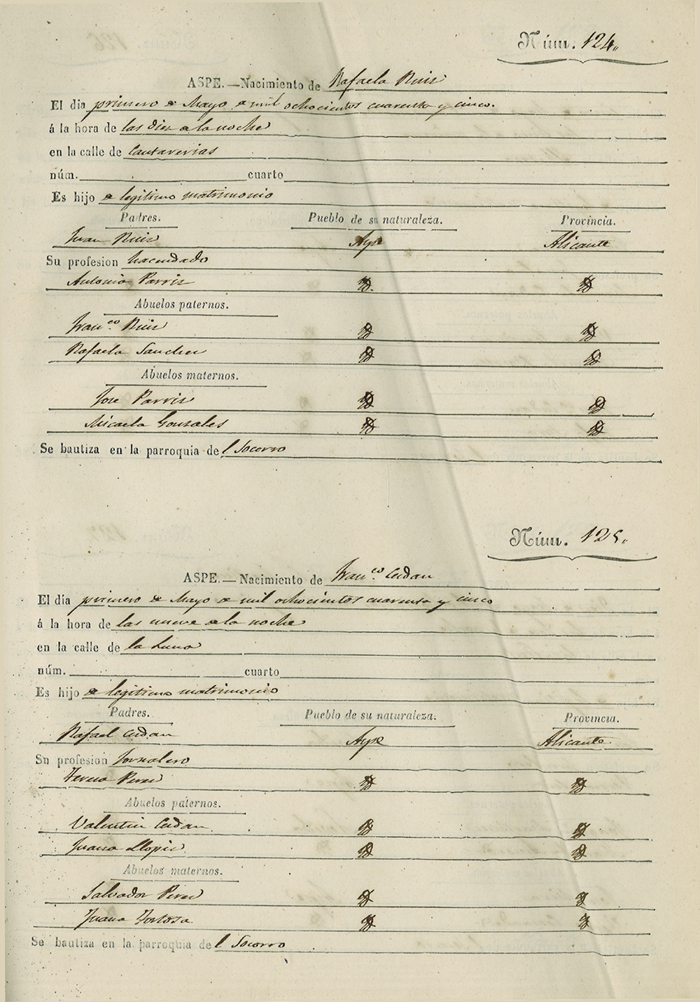 Núm. 124.
ASPE.—Nacimiento de Rafaela Ruiz
El día primero de Mayo de mil ochocientos cuarenta y cinco.
á la hora de las diez de la noche
en la calle de Cantarerias
núm. cuarto
Es hijo de legitimo matrimonio
Padres. Pueblo de su naturaleza. Provincia.
Juan Ruiz Aspe Alicante
Su profesion hacendado
Antonia Parris
Abuelos paternos.
Fran.co Ruiz
Rafaela Sanchez
Abuelos maternos.
Jose Parris
Micaela Gonzales
Se bautiza en la parroquia del Socorro
Núm. 125.
ASPE.—Nacimiento de Fran.co Cerdan
El día primero de Mayo de mil ochocientos cuarenta y cinco
á la hora de las nueve de la noche
en la calle de la Luna
núm. cuarto
Es hijo de legitimo matrimonio
Padres. Pueblo de su naturaleza. Provincia.
Rafael Cerdan Aspe Alicante
Su profesion Jornalero
Teresa Perez
Abuelos paternos.
Valentin Cerdan
Juana Llopis
Abuelos maternos.
Salvador Perez
Juana Tortosa
Se bautiza en la parroquia del Socorro